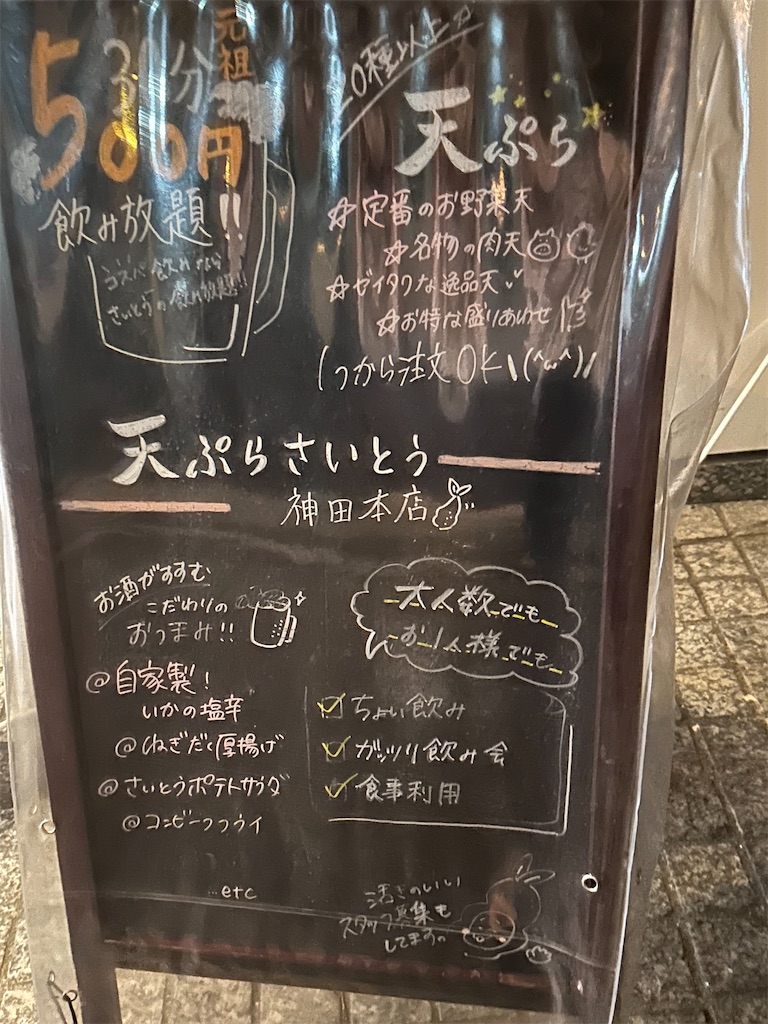 元祖
30分
500円
飲み放題!!
コスパ飲みなら
さいとうの飲み放題!!
20種以上!
天ぷら
☆定番のお野菜天
☆名物の肉天
☆ゼイタクな逸品天
☆お特な盛りあわせ
1つから注文OK\(^ω^)/
天ぷらさいとう
神田本店
お酒がすすむ
こだわりの
おつまみ!!
@自家製!
いかの塩辛
@ねぎだく厚揚げ
@さいとうポテトサラダ
@コンビーフユッケ
etc
大人数でも
お1人様でも
ちょい飲み
ガッツリ飲み会
食事利用
活きのいい
スタッフ募集も
してます。